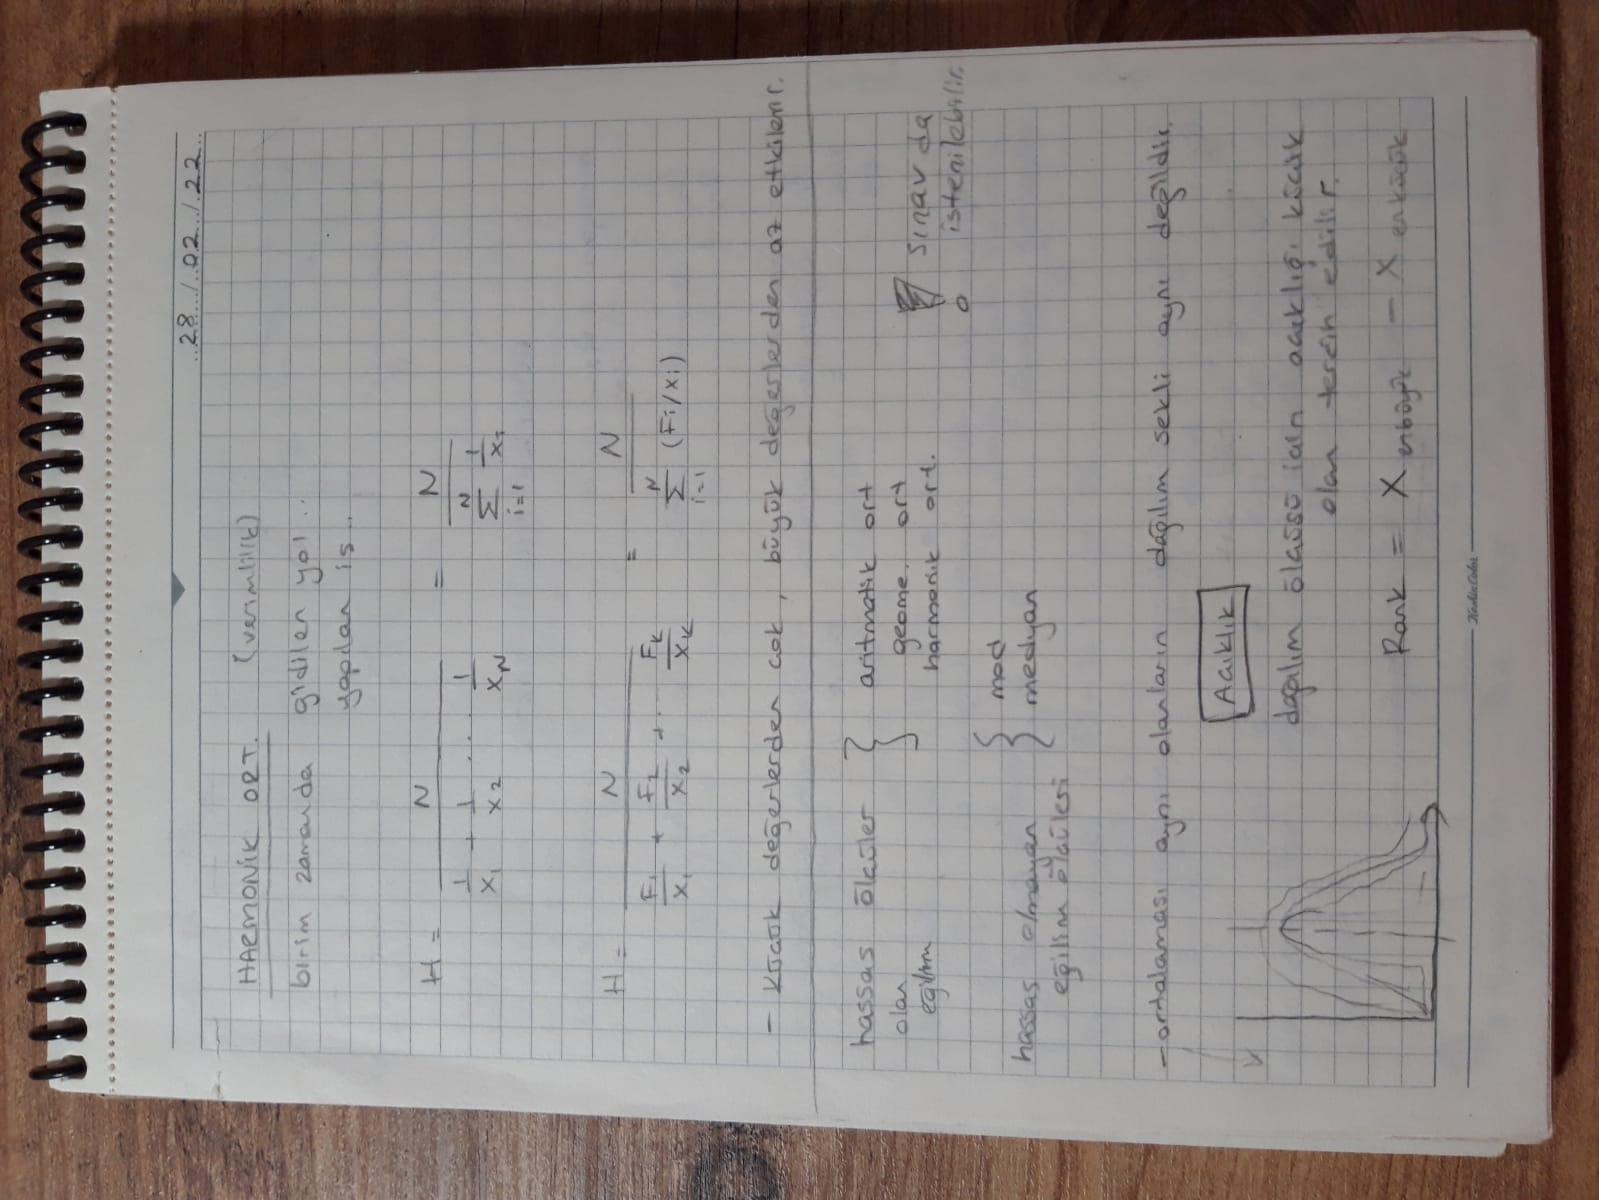 28/02/22
HARMONİK ORT. (verimlilik)
birim zamanda gidilen yol..
yapılan iş..
H = N / (1/x₁ + 1/x₂ ... 1/x_N) = N / (N Σ i=1 1/xᵢ)
H = N / (F₁/x₁ + F₂/x₂ + ... F_k/x_k) = N / (N Σ i=1 (Fi/xi))
- Küçük değerlerden çok, büyük değerlerden az etkilenir.
hassas ölçüler } aritmatik ort
olan geome. ort
eğilim harmonik ort.
sınav da
istenilebilir.
hassas olmayan { mod
eğilim ölçülesi } medyan
- ortalaması aynı olanların dağılım şekli aynı değildir.
Açıklık
dağılım ölçüsü için açıklığı küçük
olan tercih edilir.
Rank = X enbüyük - X enküçük